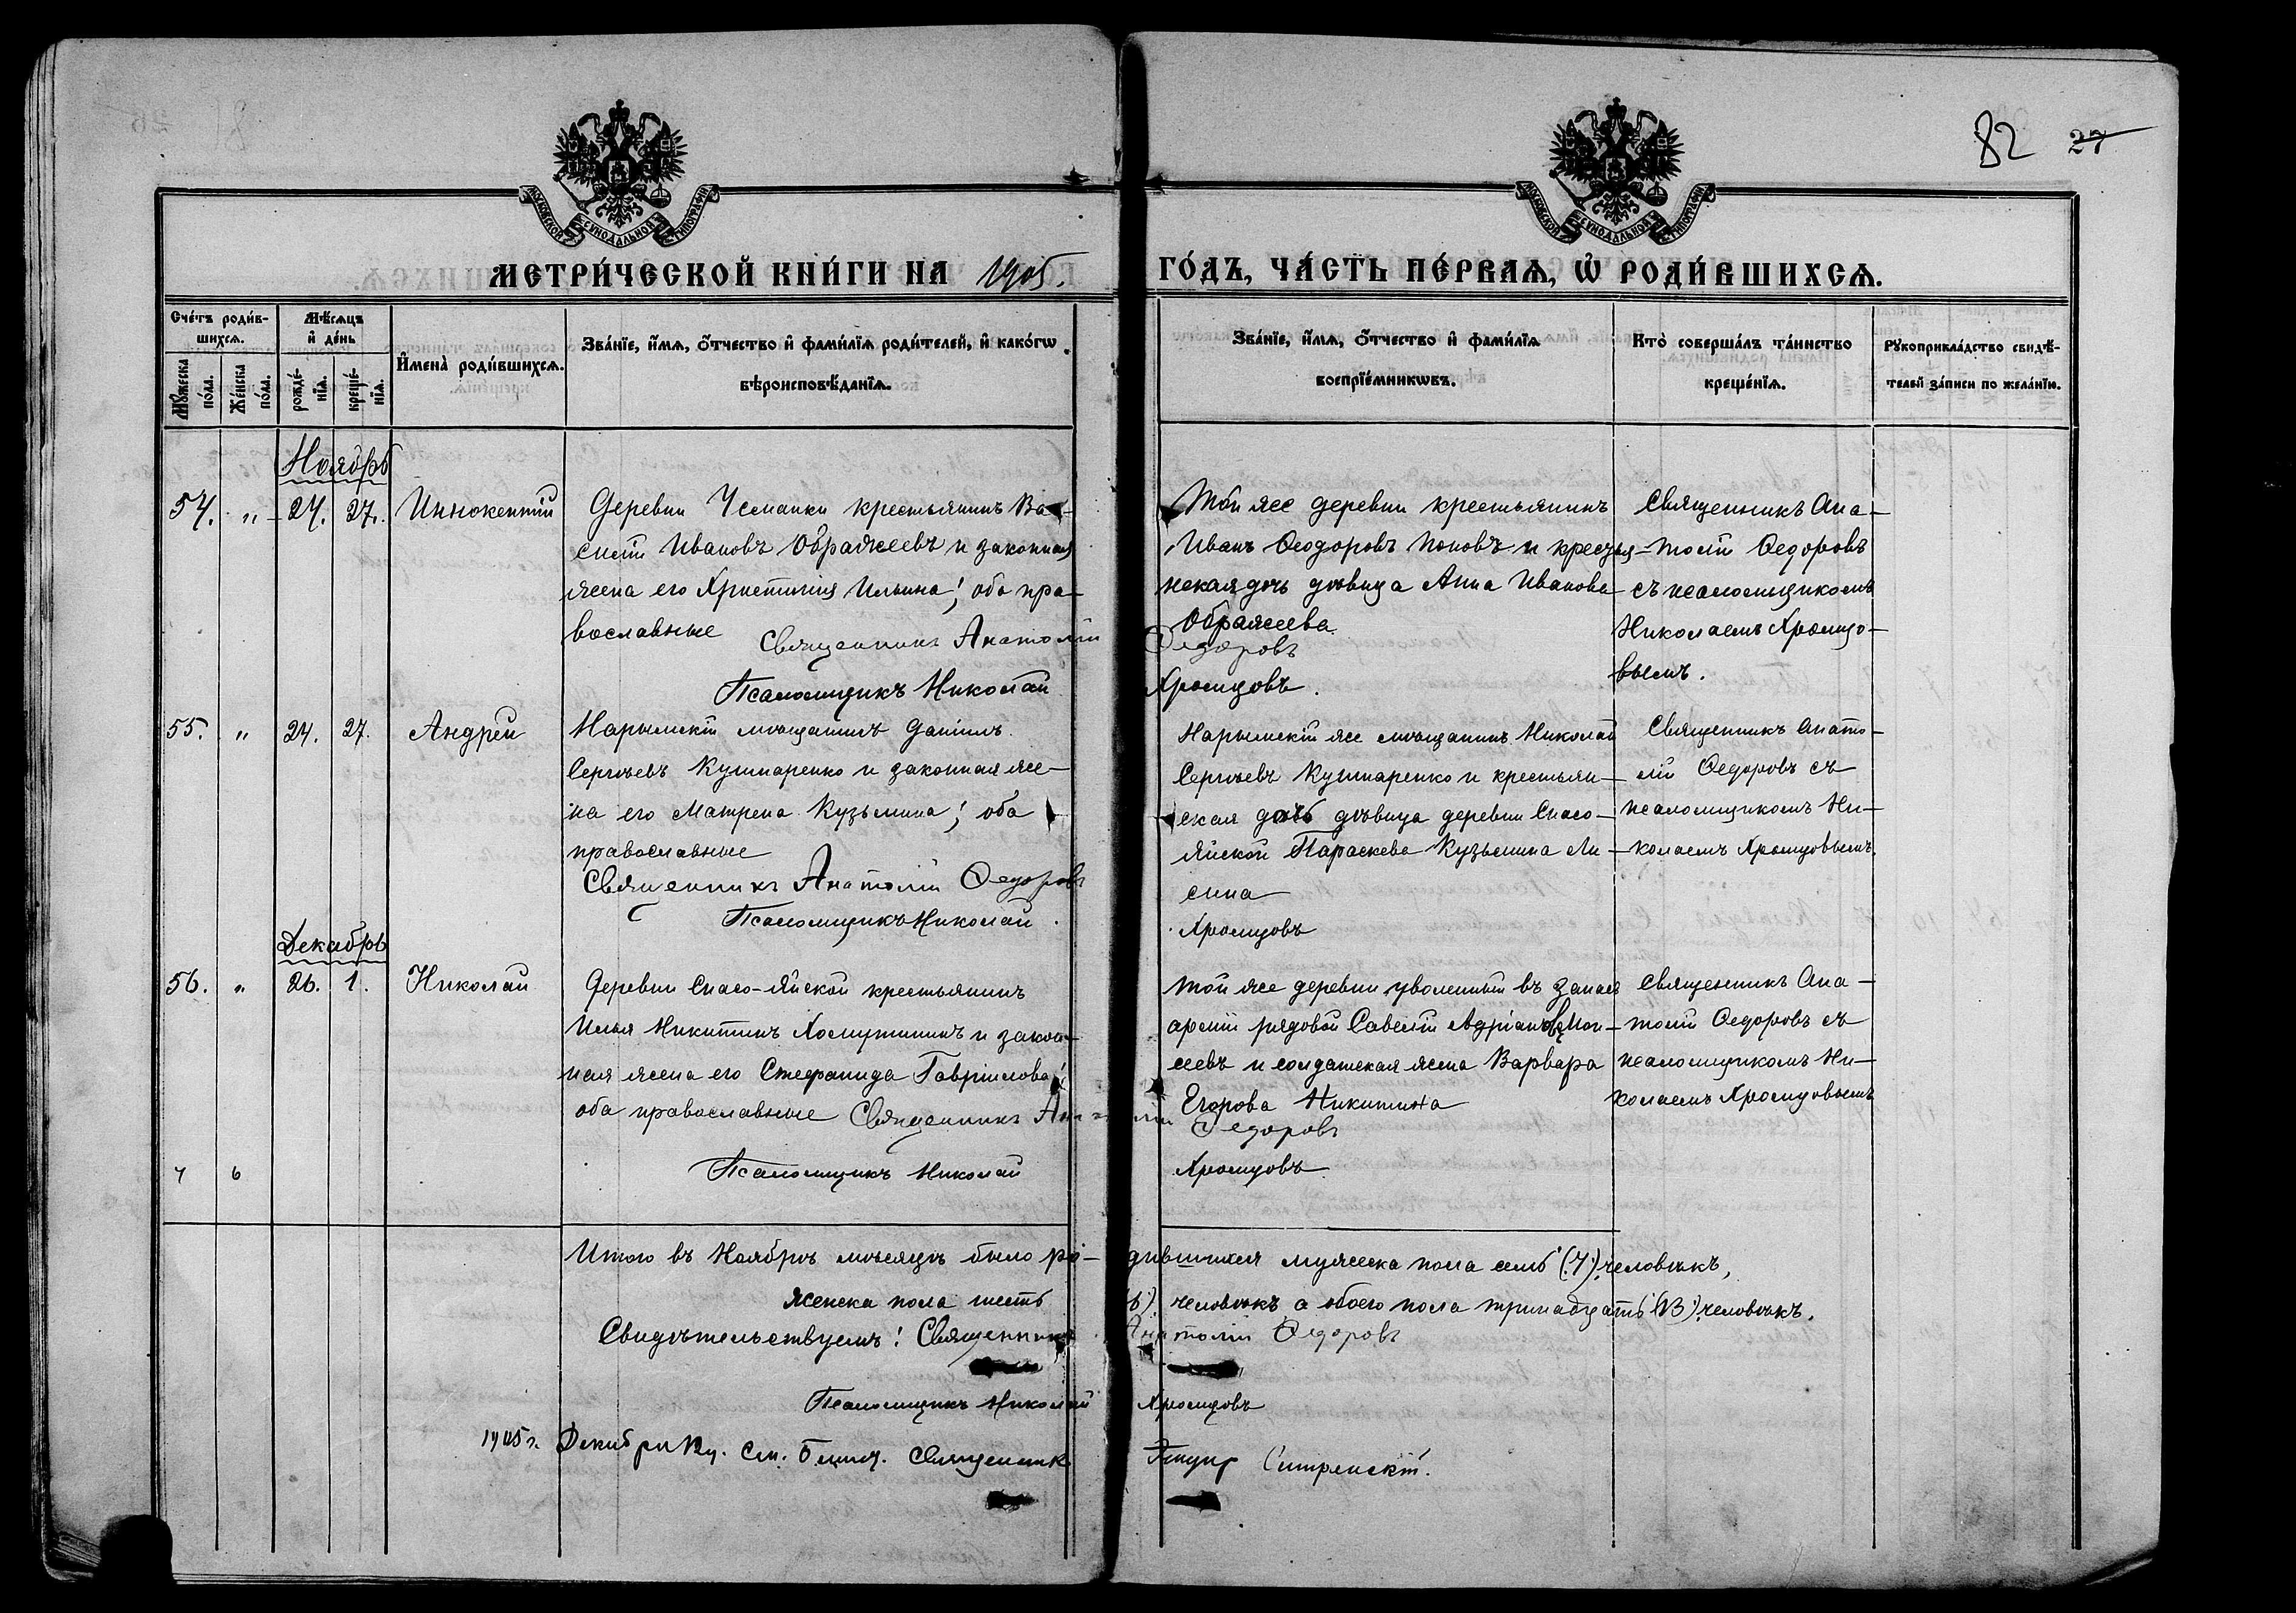 82 27
МОСКОВСКОЙ СѴНОДАЛЬНОЙ ТИПОГРАФІИ
МОСКОВСКОЙ СѴНОДАЛЬНОЙ ТИПОГРАФІИ
МЕТРИ́ЧЕСКОЙ КНИ́ГИ НА 1905.
ГО́ДЪ, ЧА́СТЬ ПЕ́РВАѦ, Ѡ҆ РОДИ́ВШИХСѦ.
Сче́тъ роди́в-
шихсѧ.
Мꙋ́жеска по́ла.
Же́нска по́ла.
Мѣ́сѧцъ
и҆ де́нь
рожде́-
нїѧ.
креще́-
нїѧ.
И҆мена̀ роди́вшихсѧ.
Зва́нїе, и҆́мѧ, ѻ҆́тчество и҆ фами́лїѧ роди́телей, и҆ како́гѡ
вѣроисповѣ́данїѧ.
Зва́нїе, и҆́мѧ, ѻ҆́тчество и҆ фами́лїѧ
воспрїе́мникѡвъ.
Кто̀ соверша́лъ та́инство
креще́нїѧ.
Рꙋкоприкла́дство свидѣ́-
телей за́писи по жела́нїю.
Ноябрь
54. " 24. 27. Иннокентій
Деревни Чесмаки крестьянинъ Ва-
силій Ивановъ Ображеевъ и законная
жена его Христинія Ильина; оба пра-
вославные
Священникъ Анатолій Федоровъ
Псаломщикъ Николай Хромцовъ.
Той же деревни крестьянинъ
Иванъ Ѳеодоровъ Поповъ и крестья-
нская дочь дѣвица Анна Иванова
Ображеева
Священникъ Ана-
толій Ѳедоровъ
съ псаломщикомъ
Николаемъ Хромцо-
вымъ.
55. " 24. 27. Андрей
Нарымскій мѣщанинъ Даніилъ
Сергѣевъ Кушнаренко и законная же-
на его Матрена Кузьмина; оба
православные
Священникъ Анатолій Федоровъ
Псаломщикъ Николай Хромцовъ
Нарымскій же мѣщанинъ Николай
Сергѣевъ Кушнаренко и крестьян-
ская дочь дѣвица деревни Спасо-
Яйской Параскева Кузьмина Ли-
сина
Священникъ Анато-
лій Ѳедоровъ съ
псаломщикомъ Ни-
колаемъ Хромцовымъ.
Декабрь
56. " 26. 1. Николай
Деревни Спасо-Яйской крестьянинъ
Илья Никитинъ Хомутининъ и закон-
ная жена его Стефанида Гавріилова;
оба православные
Священникъ Анатолій Федоровъ
Псаломщикъ Николай Хромцовъ
Той же деревни уволенный въ запасъ
арміи рядовой Савелій Адріановъ Мои-
сеевъ и солдатская жена Варвара
Егорова Никитина
Священникъ Ана-
толій Ѳедоровъ съ
псаломщикомъ Ни-
колаемъ Хромцовымъ
7 6
Итого въ Ноябрѣ мѣсяцѣ было родившихся мужеска пола семь (7) человѣкъ,
женска пола шесть (6) человѣкъ а обоего пола тринадцать (13) человѣкъ.
Свидѣтельствуемъ: Священникъ Анатолій Ѳедоровъ
Псаломщикъ Николай Хромцовъ
1905 г. Декабря См. Священникъ